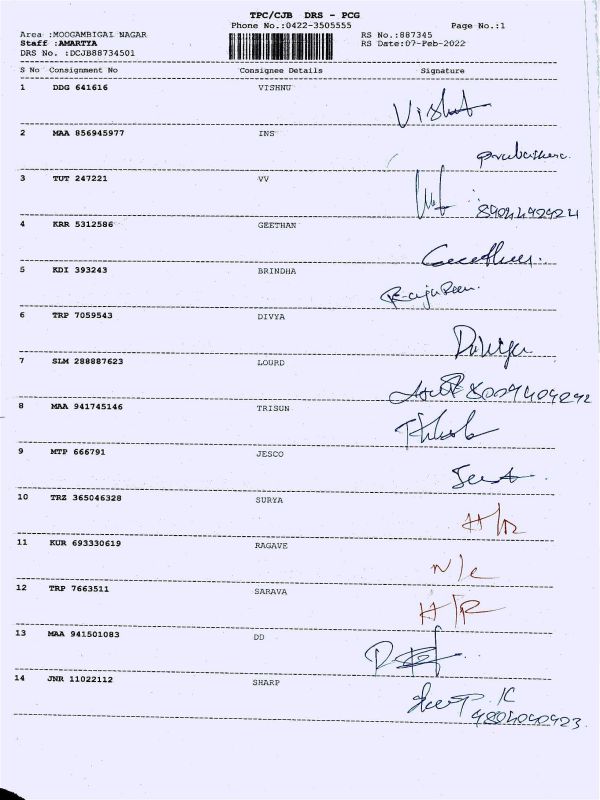 TPC/CJB DRS - PCG
Phone No.:0422-3505555 Page No.:1
Area :MOOGAMBIGAI NAGAR RS No.:887345
Staff :AMARTYA RS Date:07-Feb-2022
DRS No. :DCJB88734501
S No Consignment No Consignee Details Signature
1 DDG 641616 VISHNU
2 MAA 856945977 INS
3 TUT 247221 VV
4 KRR 5312586 GEETHAN
5 KDI 393243 BRINDHA
6 TRP 7059543 DIVYA
Divya
7 SLM 288887623 LOURD
8 MAA 941745146 TRISUN
9 MTP 666791 JESCO
10 TRZ 365046328 SURYA
H/R
11 KUR 693330619 RAGAVE
N/C
12 TRP 7663511 SARAVA
H/R
13 MAA 941501083 DD
14 JNR 11022112 SHARP